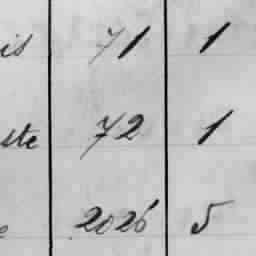 is 71 1
ste 72 1
e 2026 5